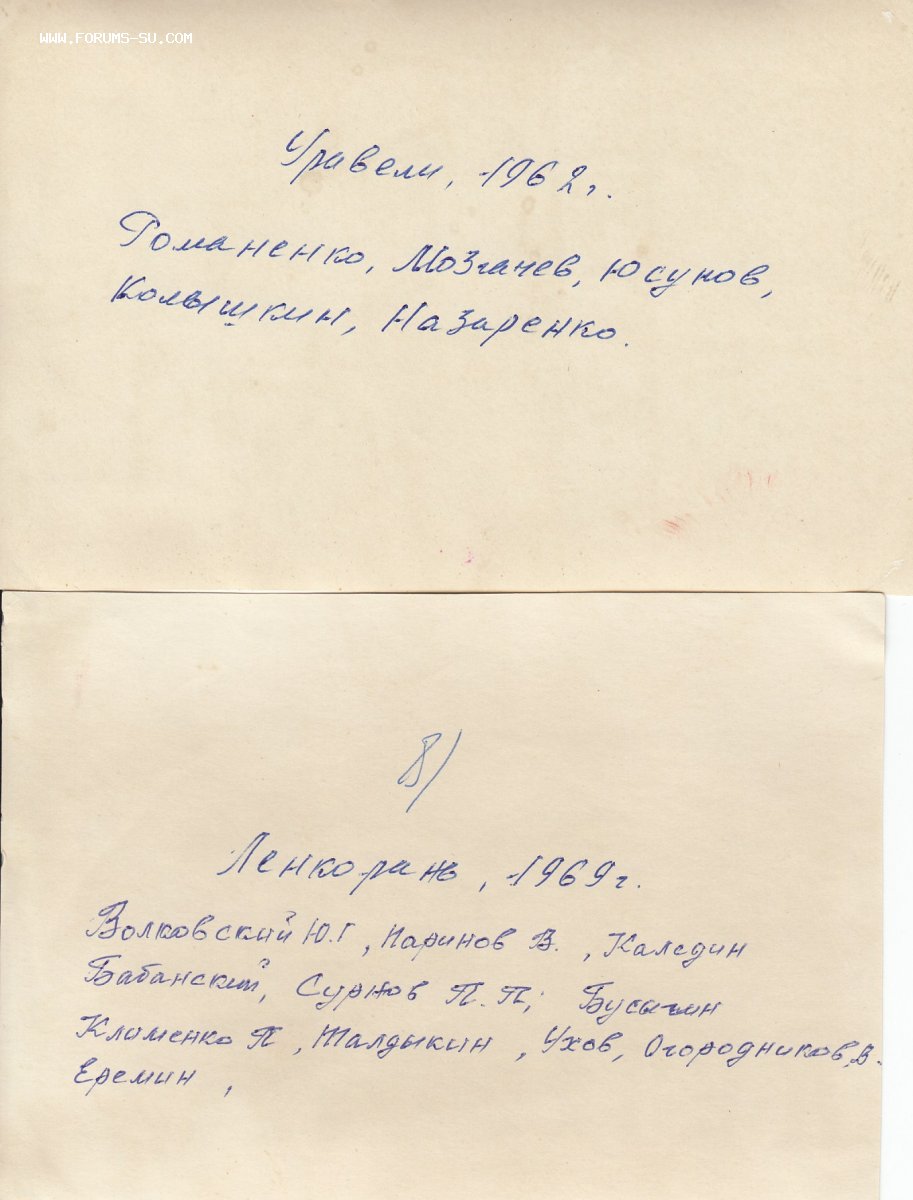 WWW.FORUMS-SU.COM
Уравели, 1962г.
Романенко, Мозгачев, Юсупов,
Колышкин, Назаренко.
8)
Ленкорань, 1969г.
Волковский Ю.Г, Паринов В., Каледин
Бабанский, Сурнов П.П; Бусыгин
Клименко П, Шалдыкин, Ухов, Огородников, В.
Еремин,